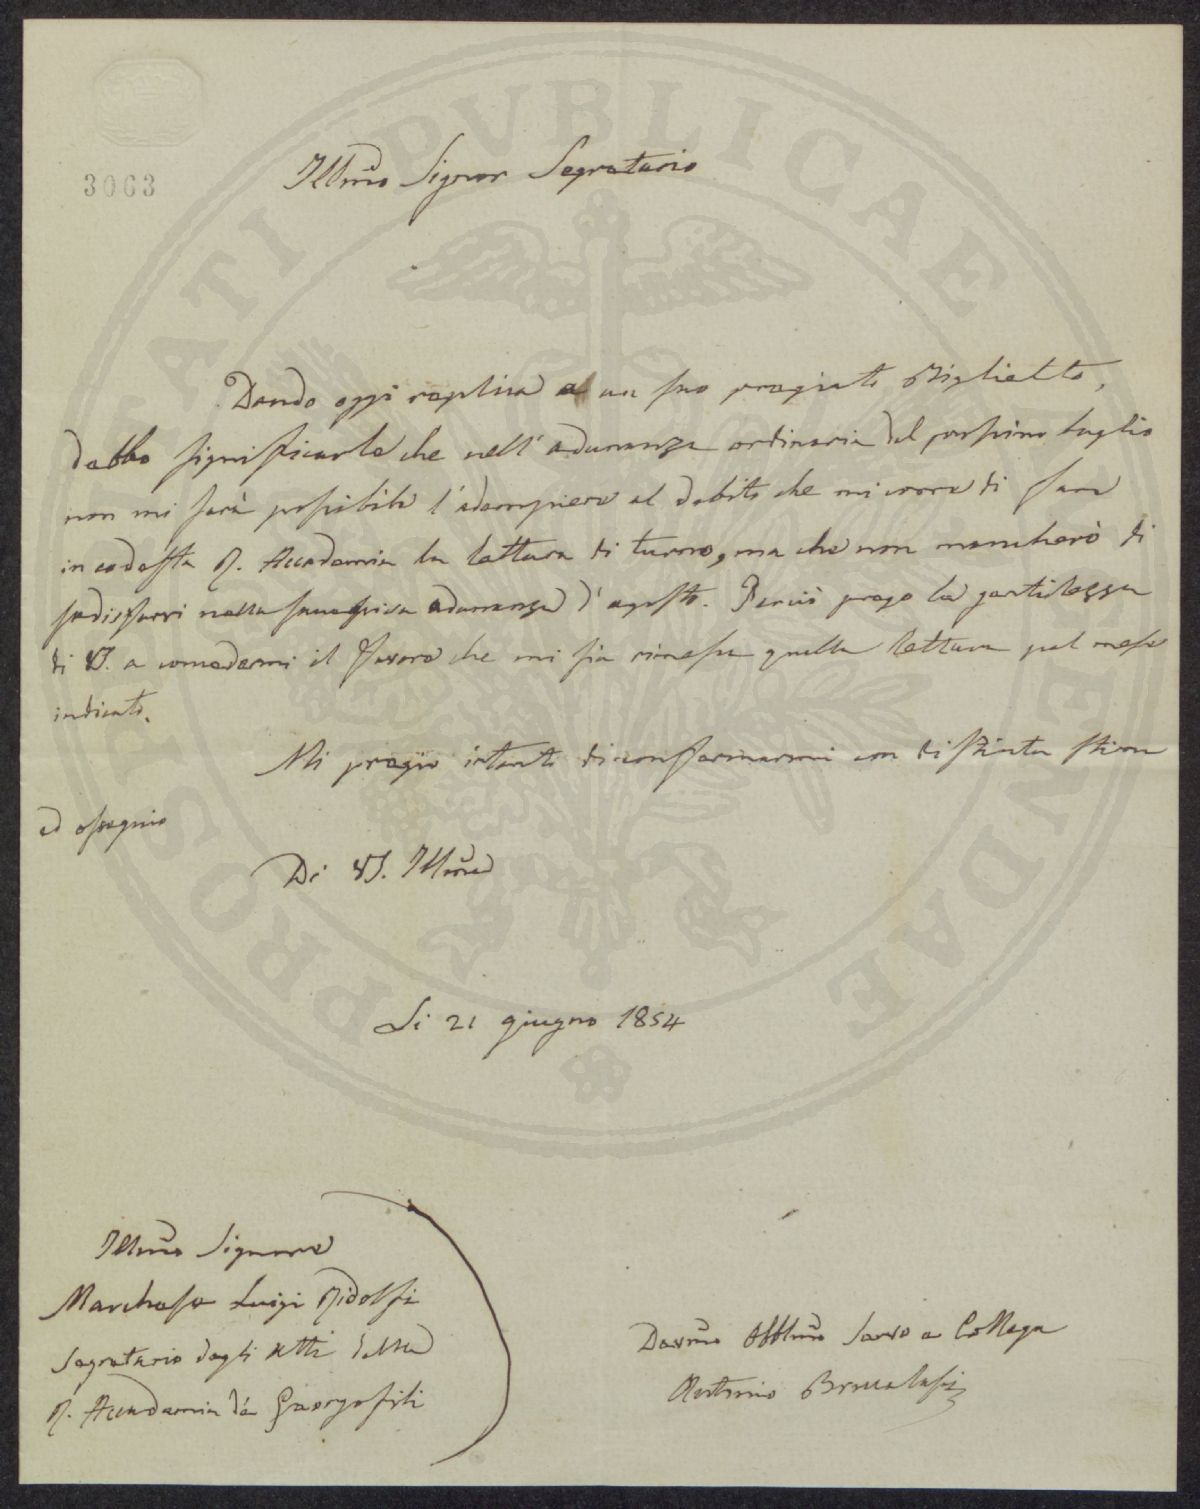 3063
Illmo Signor Segretario
Dando oggi replica a un suo pregiato Biglietto,
debbo significarle che nell'adunanza ordinaria del prossimo luglio
non mi sarà possibile l'adempiere al debito che mi corre di fare
in codesta R. Accademia la lettura di turno, ma che non mancherò di
sodisfarvi nella successiva adunanza d'agosto. Perciò prego la gentilezza
di VS. a concedermi il favore che mi sia rimessa quella lettura pel mese
indicato.
Mi pregio intanto di confermarmi con distinta stima
ed ossequio
Di VS. Illma
Li 21 giugno 1854
Illmo Signore
Marchese Luigi Ridolfi
Segretario degli Atti della
R. Accademia dei Georgofili
Devmo Obblmo Servo e Collega
Antonio
PROSPERITATI PUBLICAE AUGENDAE